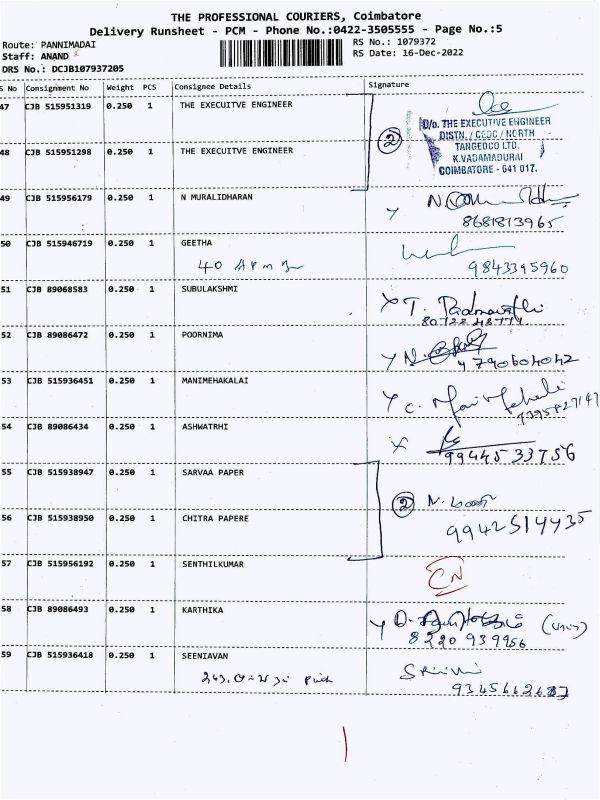 THE PROFESSIONAL COURIERS, Coimbatore
Delivery Runsheet - PCM - Phone No.:0422-3505555 - Page No.:5
Route: PANNIMADAI
Staff: ANAND
DRS No.: DCJB107937205
RS No.: 1079372
RS Date: 16-Dec-2022
S No Consignment No Weight PCS Consignee Details Signature
47 CJB 515951319 0.250 1 THE EXECUITVE ENGINEER
48 CJB 515951298 0.250 1 THE EXECUITVE ENGINEER
2
O/o. THE EXECUTIVE ENGINEER
DISTN. / CEDC / NORTH
TANGEDCO LTD.
K.VADAMADURAI
COIMBATORE - 641 017.
49 CJB 515956179 0.250 1 N MURALIDHARAN
8681813965
50 CJB 515946719 0.250 1 GEETHA
40
9843395960
51 CJB 89068583 0.250 1 SUBULAKSHMI
T. Padmavathi
52 CJB 89086472 0.250 1 POORNIMA
53 CJB 515936451 0.250 1 MANIMEHAKALAI
54 CJB 89086434 0.250 1 ASHWATRHI
9944533756
55 CJB 515938947 0.250 1 SARVAA PAPER
56 CJB 515938950 0.250 1 CHITRA PAPERE
2 N. மணி
9942514435
57 CJB 515956192 0.250 1 SENTHILKUMAR
CN
58 CJB 89086493 0.250 1 KARTHIKA
8220939956
59 CJB 515936418 0.250 1 SEENIAVAN